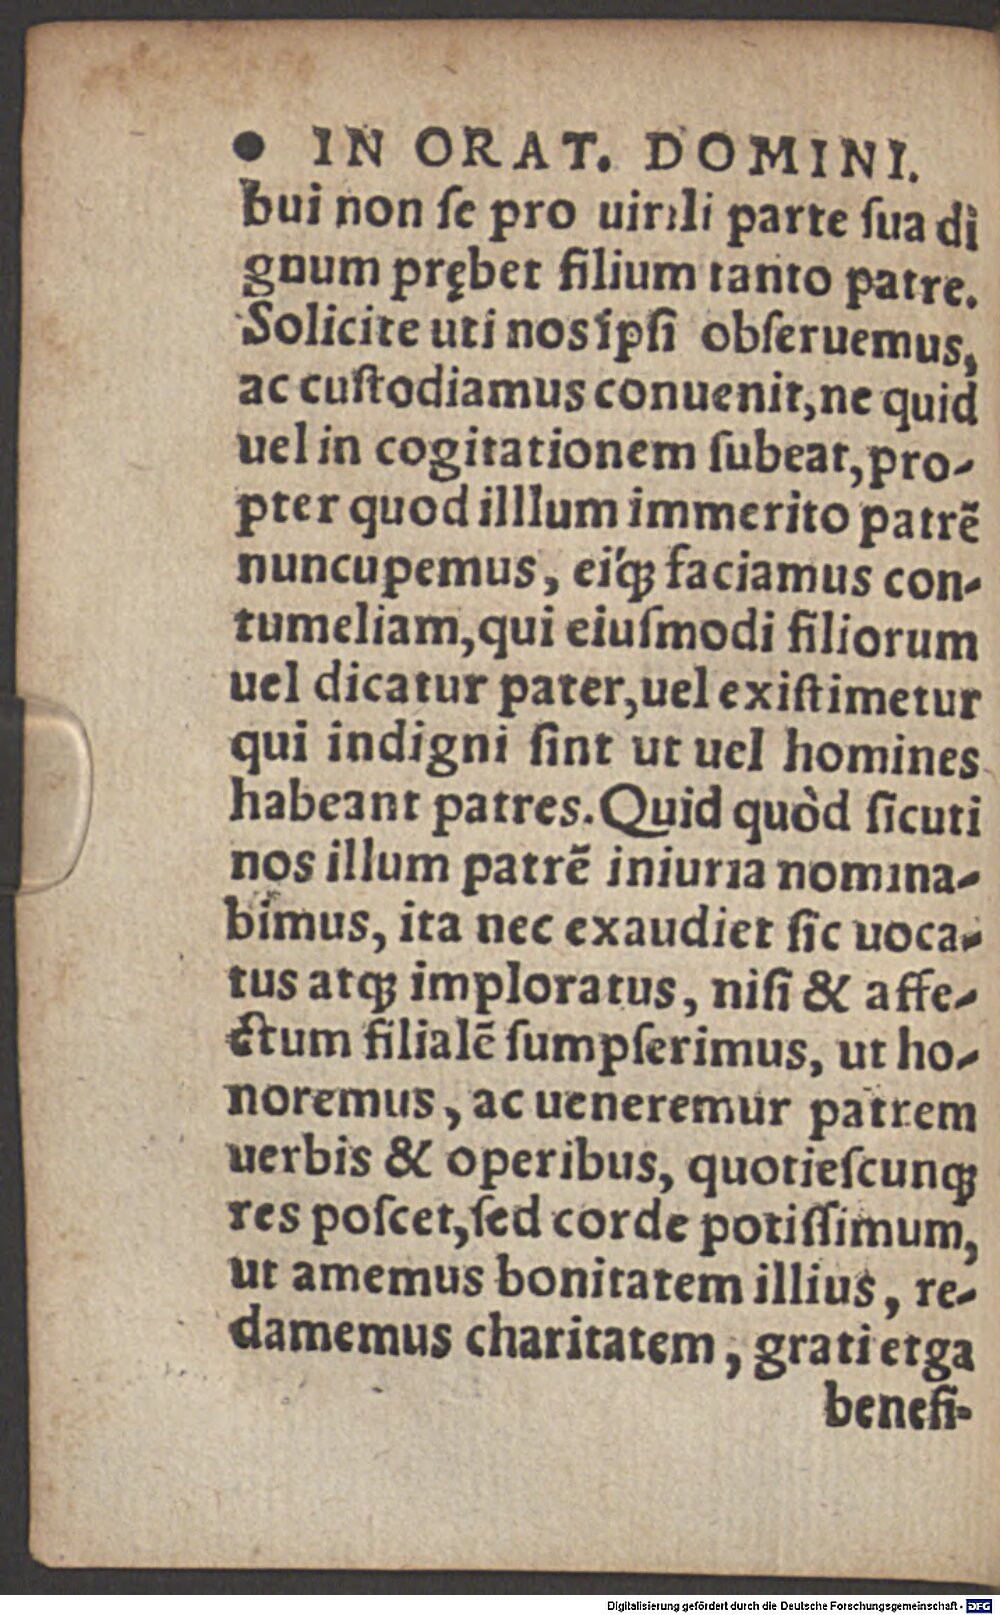 ● IN ORAT. DOMINI.
bui non ſe pro uirili parte ſua di
gnum prębet filium tanto patre.
Solicite uti nos ipſi obſeruemus,
ac cuſtodiamus conuenit, ne quid
uel in cogitationem ſubeat, pro-
pter quod illlum immerito patrē
nuncupemus, ei'q; faciamus con-
tumeliam, qui eiuſmodi filiorum
uel dicatur pater, uel exiſtimetur
qui indigni ſint ut uel homines
habeant patres. Quid quòd ſicuti
nos illum patrē iniuria nomina-
bimus, ita nec exaudiet ſic uoca-
tus atq; imploratus, niſi & affe-
ctum filialē ſumpſerimus, ut ho-
noremus, ac ueneremur patrem
uerbis & operibus, quotieſcunq;
res poſcet, ſed corde potiſſimum,
ut amemus bonitatem illius, re-
damemus charitatem, grati etga
benefi-
Digitalisierung gefördert durch die Deutsche Forschungsgemeinschaft - DFG